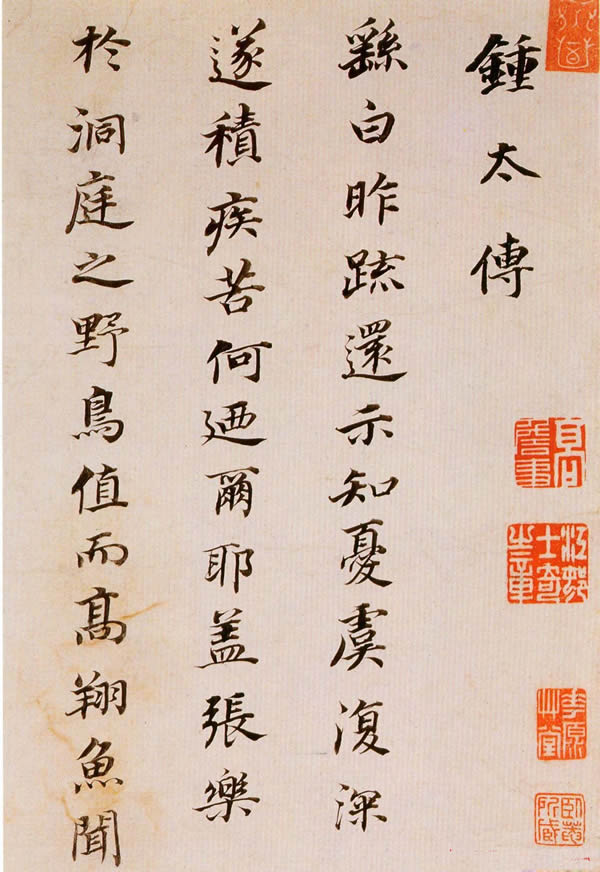 鍾太傅
繇白昨疏還示知憂虞復深
遂積疾苦何迺爾耶盖張樂
於洞庭之野鳥值而髙翔魚聞